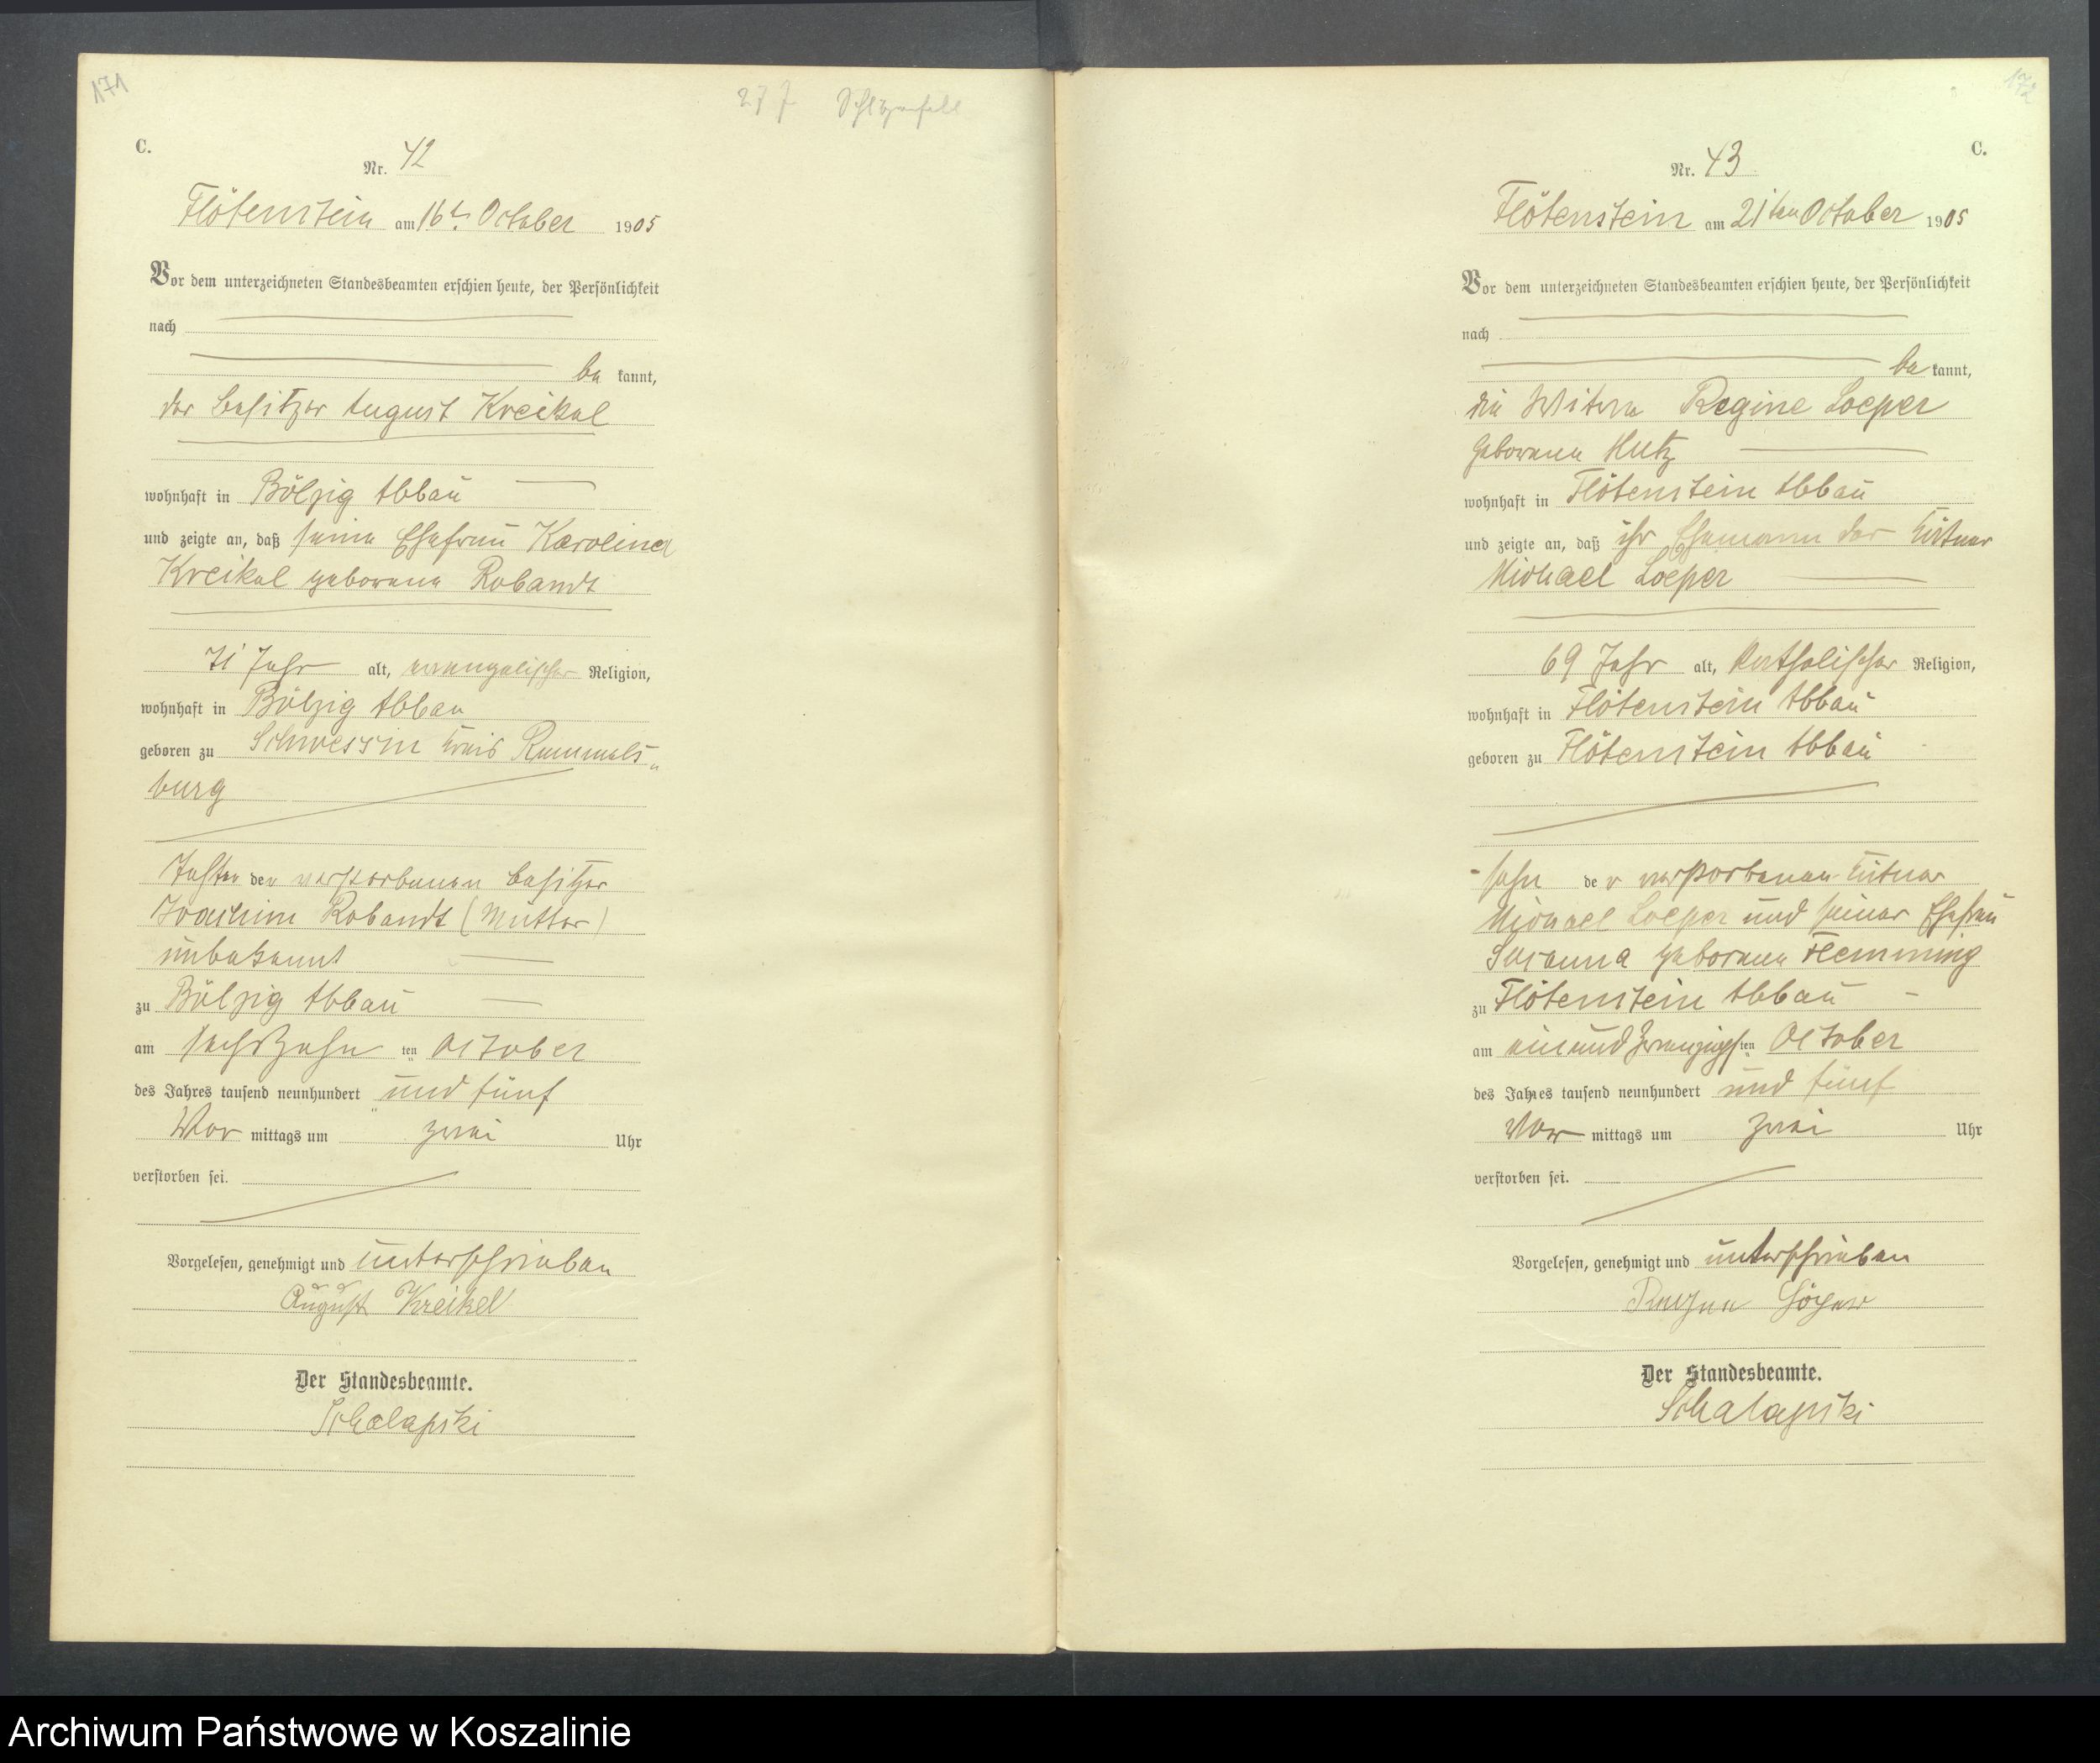 171
277
C.
Nr. 42
Flötenstein am 16t. October 1905
Vor dem unterzeichneten Standesbeamten erschien heute, der Persönlichkeit
nach
be kannt,
der Besitzer August Kreikel
wohnhaft in Bölzig Abbau
und zeigte an, daß seine Ehefrau Karoline
Kreikel geborene Robandt
71 Jahr alt, evangelischer Religion,
wohnhaft in Bölzig Abbau
geboren zu Schwessin Kreis Rummels„
burg
Tochter der verstorbenen Besitzer
Joachim Robandt (Mutter)
unbekannt
zu Bölzig Abbau
am sechszehn ten October
des Jahres tausend neunhundert und fünf
Vor mittags um zwei Uhr
verstorben sei.
Vorgelesen, genehmigt und unterschrieben
August Kreikel
Der Standesbeamte.
Schalapski
172
C.
Nr. 43
Flötenstein am 21ten October 1905
Vor dem unterzeichneten Standesbeamten erschien heute, der Persönlichkeit
nach
be kannt,
die Witwe Regine Loeper
geborene Hutz
wohnhaft in Flötenstein Abbau
und zeigte an, daß ihr Ehemann der
Michael Loeper
69 Jahr alt, katholischer Religion,
wohnhaft in Flötenstein Abbau
geboren zu Flötenstein Abbau
Sohn der verstorbenen
Michael Loeper und seiner Ehefrau
Susanna geborene Flemming
zu Flötenstein Abbau
am einundzwanzigsten ten October
des Jahres tausend neunhundert und fünf
Vor mittags um zwei Uhr
verstorben sei.
Vorgelesen, genehmigt und unterschrieben
Der Standesbeamte.
Schalapski
Archiwum Państwowe w Koszalinie